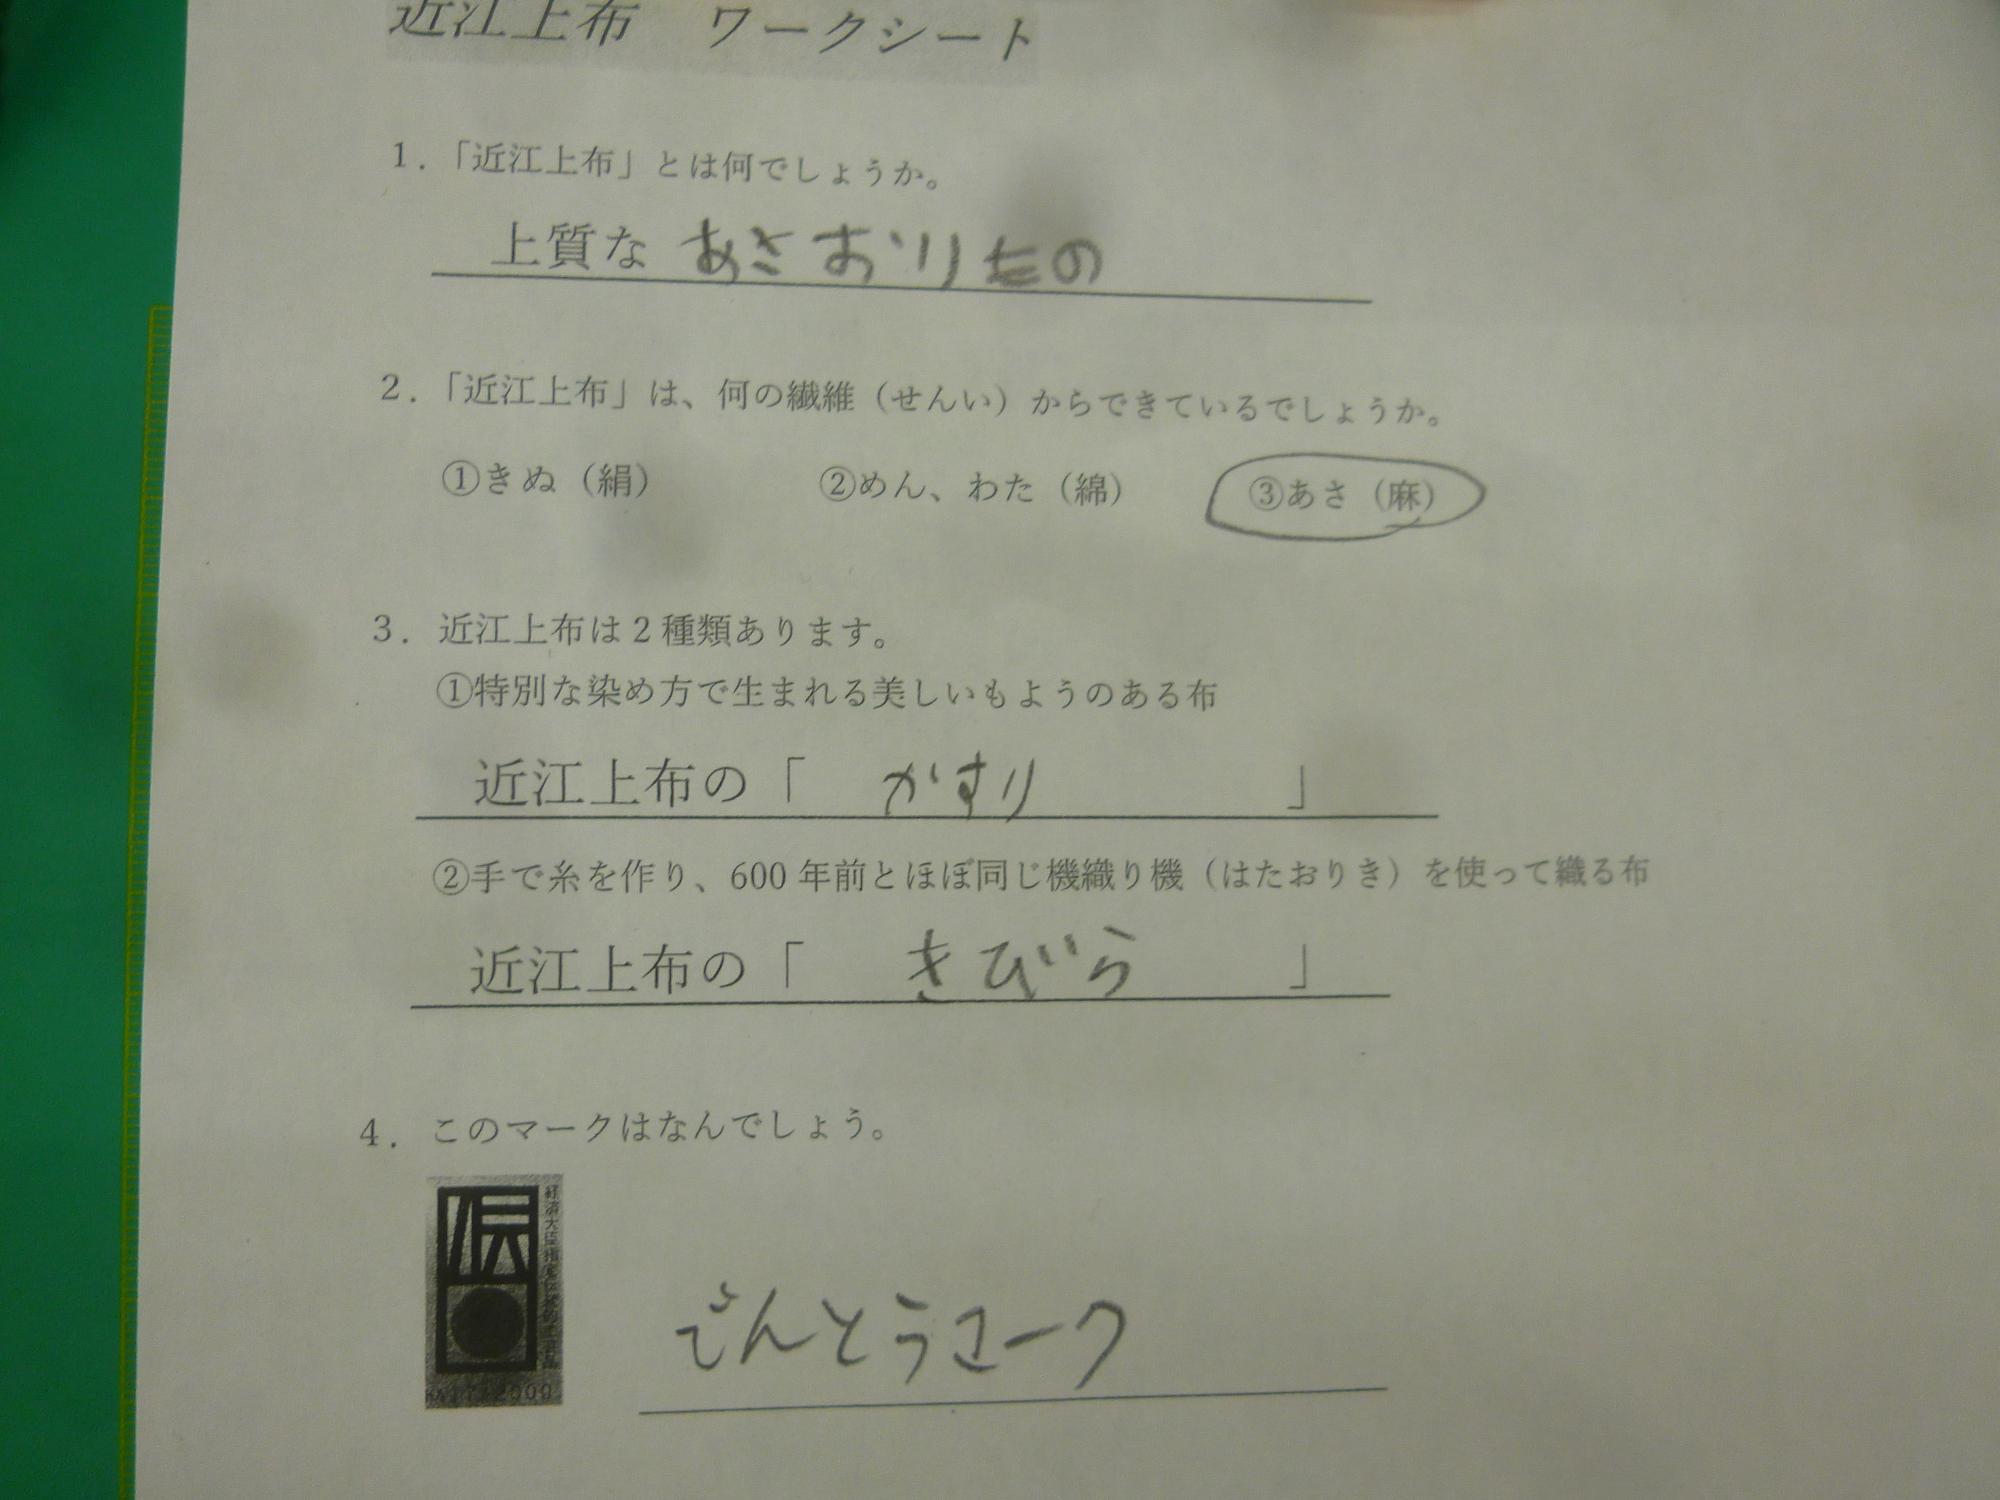 近江上布　ワークシート
1.「近江上布」とは何でしょうか。
上質な あさおりもの
2.「近江上布」は、何の繊維（せんい）からできているでしょうか。
①きぬ（絹）　②めん、わた（綿）　③あさ（麻）
3. 近江上布は2種類あります。
①特別な染め方で生まれる美しいもようのある布
近江上布の「　かすり　」
②手で糸を作り、600年前とほぼ同じ機織り機（はたおりき）を使って織る布
近江上布の「　きびら　」
4. このマークはなんでしょう。
経済大臣指定伝統的工芸品
でんとうマーク